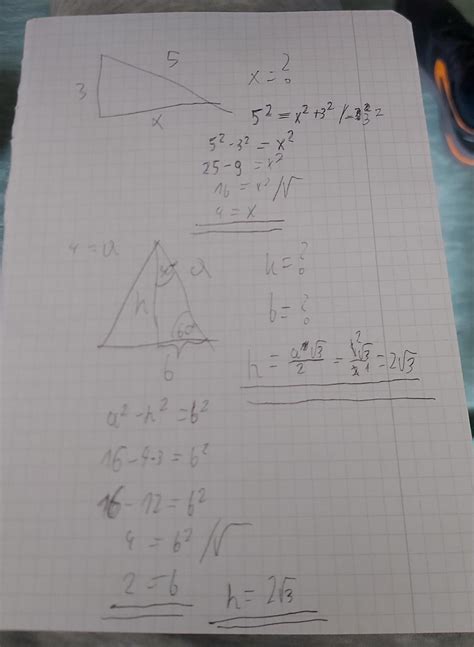 5
3
x
x = ?
5² = x² + 3² /-3²
5² - 3² = x²
25 - 9 = x²
16 = x² /√
4 = x
4 = a
a
h
30°
60°
b
h = ?
b = ?
h = a√3/2 = 4√3/2 = 2√3
a² - h² = b²
16 - 4·3 = b²
16 - 12 = b²
4 = b² /√
2 = b
h = 2√3